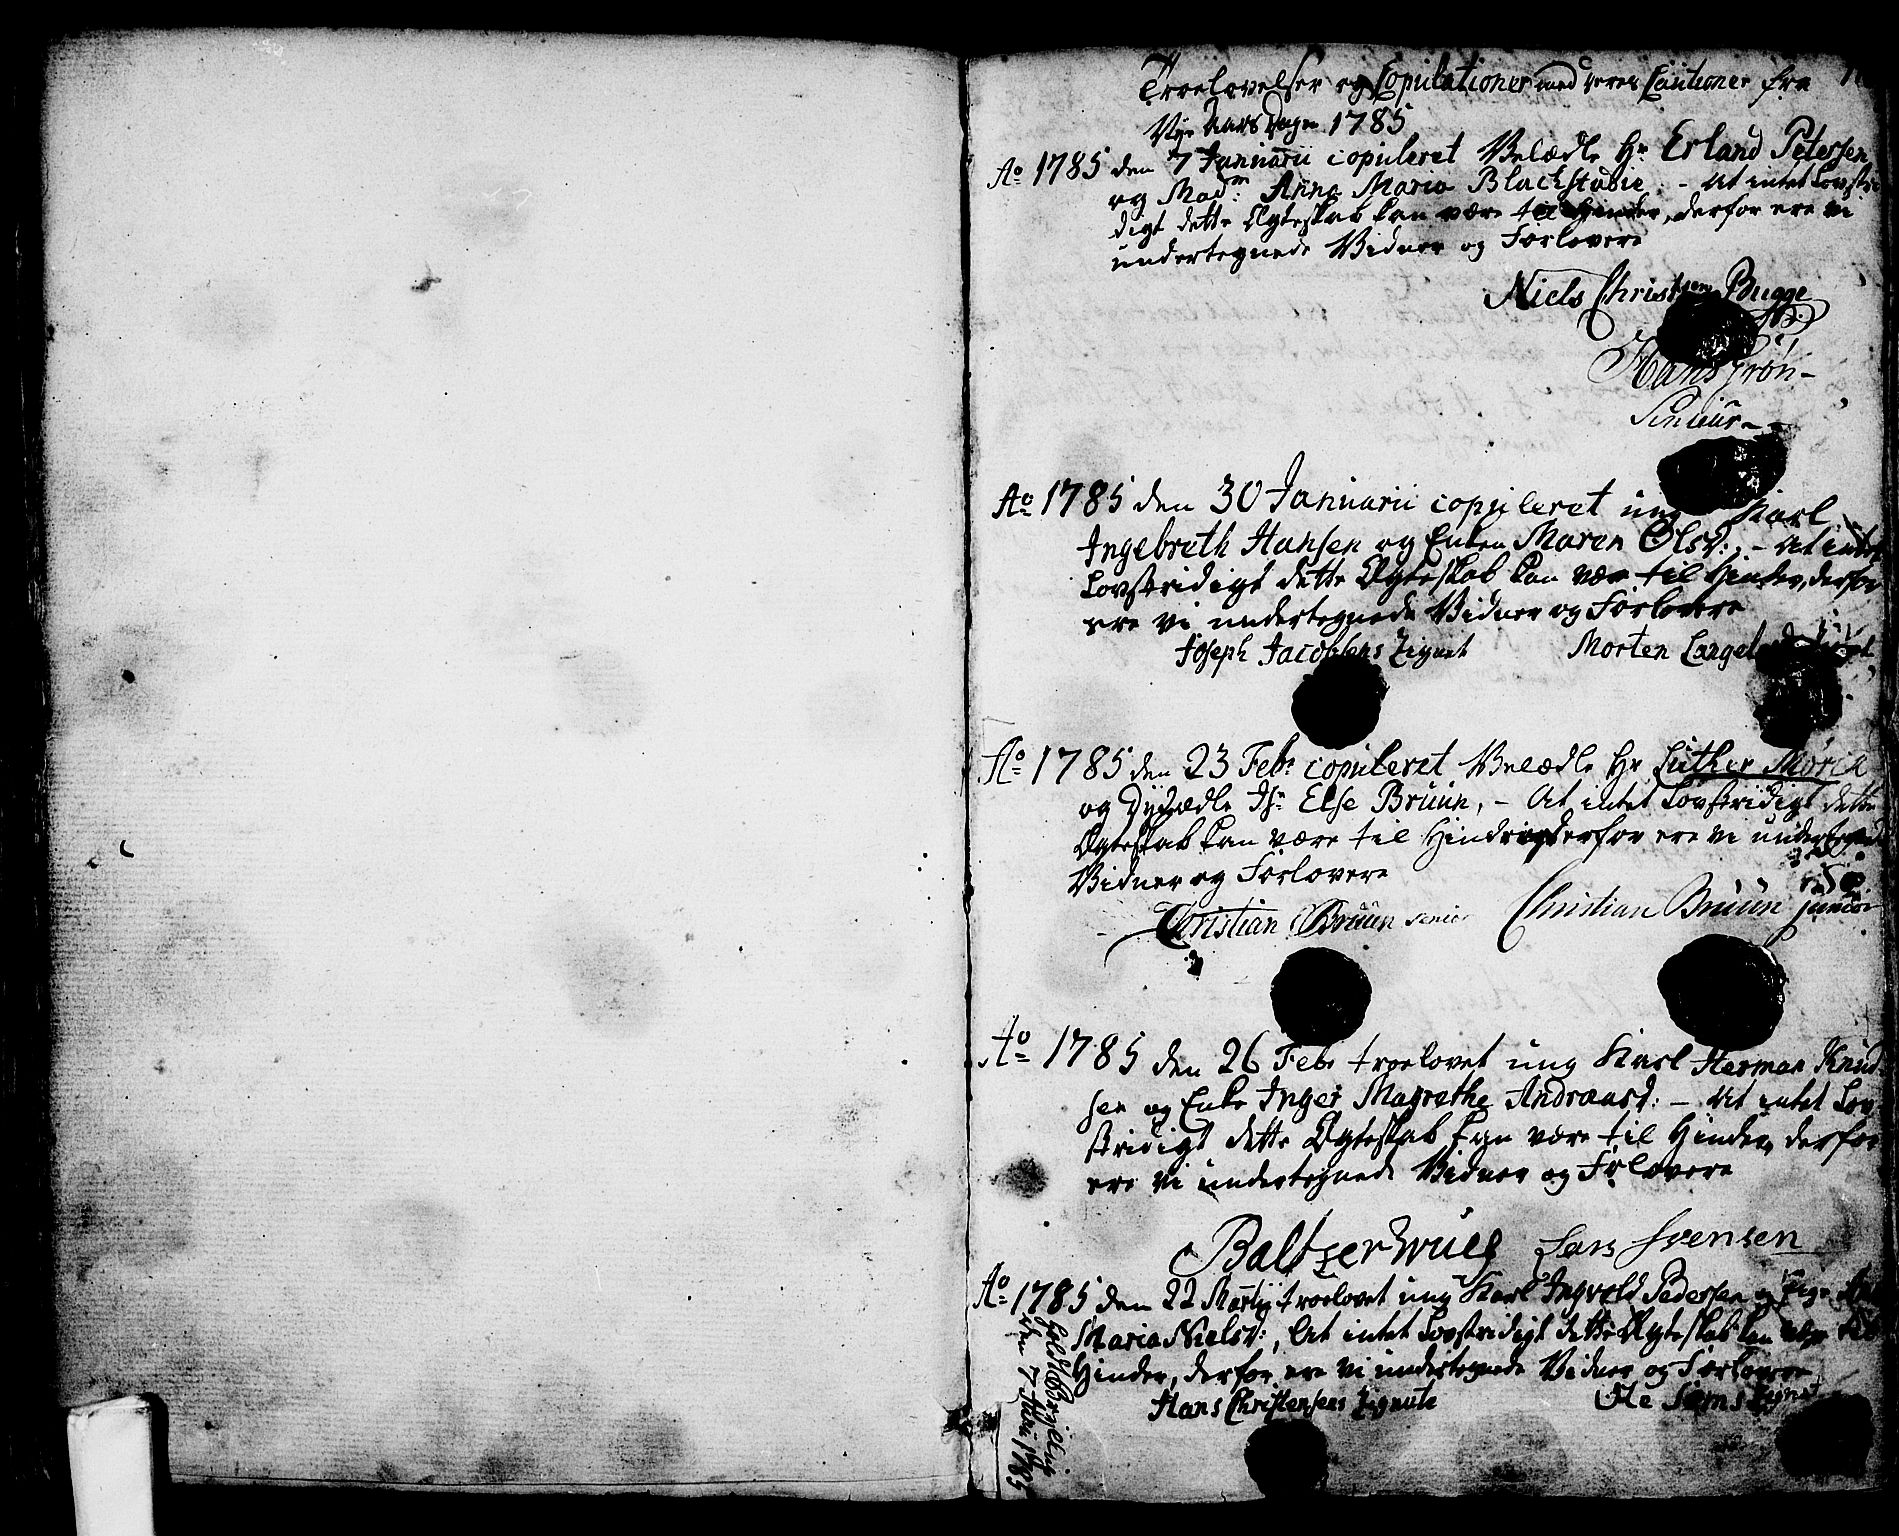 Troelovelser og Copulationer med deres Cautioner fra
Nye Aars Dagen 1785
Ao 1785 den 7 Januarii copuleret Velædle Hr Erland Petersen
og Madm: Anna Maria Blachstabie. - At intet Lovstri
digt dette Ægteskab kan være til Hinder, derfor ere vi
undertegnede Vidner og Forlovere
Niels Christ Bugge
Hans
Seniour
Ao 1785 den 30 Januarii copuleret ung Karl
Ingebreth Hansen og Enken Maren Olsd:, - At intet
Lovstridigt dette Ægteskab kan være til Hinder, derfor
ere vi undertegnede Vidner og Forlovere
Joseph Jacobsens Zignet Morten
Ao 1785 den 23 Febr copuleret Velædle Hr Luther
og Dydædle Jfr Else Bruun, - At intet Lovstridigt dette
Ægteskab kan være til derfor ere vi undertegnede
Vidner og Forlovere
Christian Bruun senior Christian Bruun junior
Ao 1785 den 26 Febr troelovet ung Karl Herman Knud
sen og Enke Inger Magrethe Andreasd: - At intet Lov
stridigt dette Ægteskab kan være til Hinder, derfor
ere vi undertegnede Vidner og Forlovere
Baltzer Lars Svensen
Ao 1785 den 22 Martii troelovet ung Karl Ingvold Pedersen og Pige
Maria Nielsd:, At intet Lovstridigt dette Ægteskab kan være til
Hinder, derfor ere vi undertegnede Vidner og Forlovere
Hans Christensens Zignete Ole Zignet
holdt Bryllup
den 7 Juni 1785